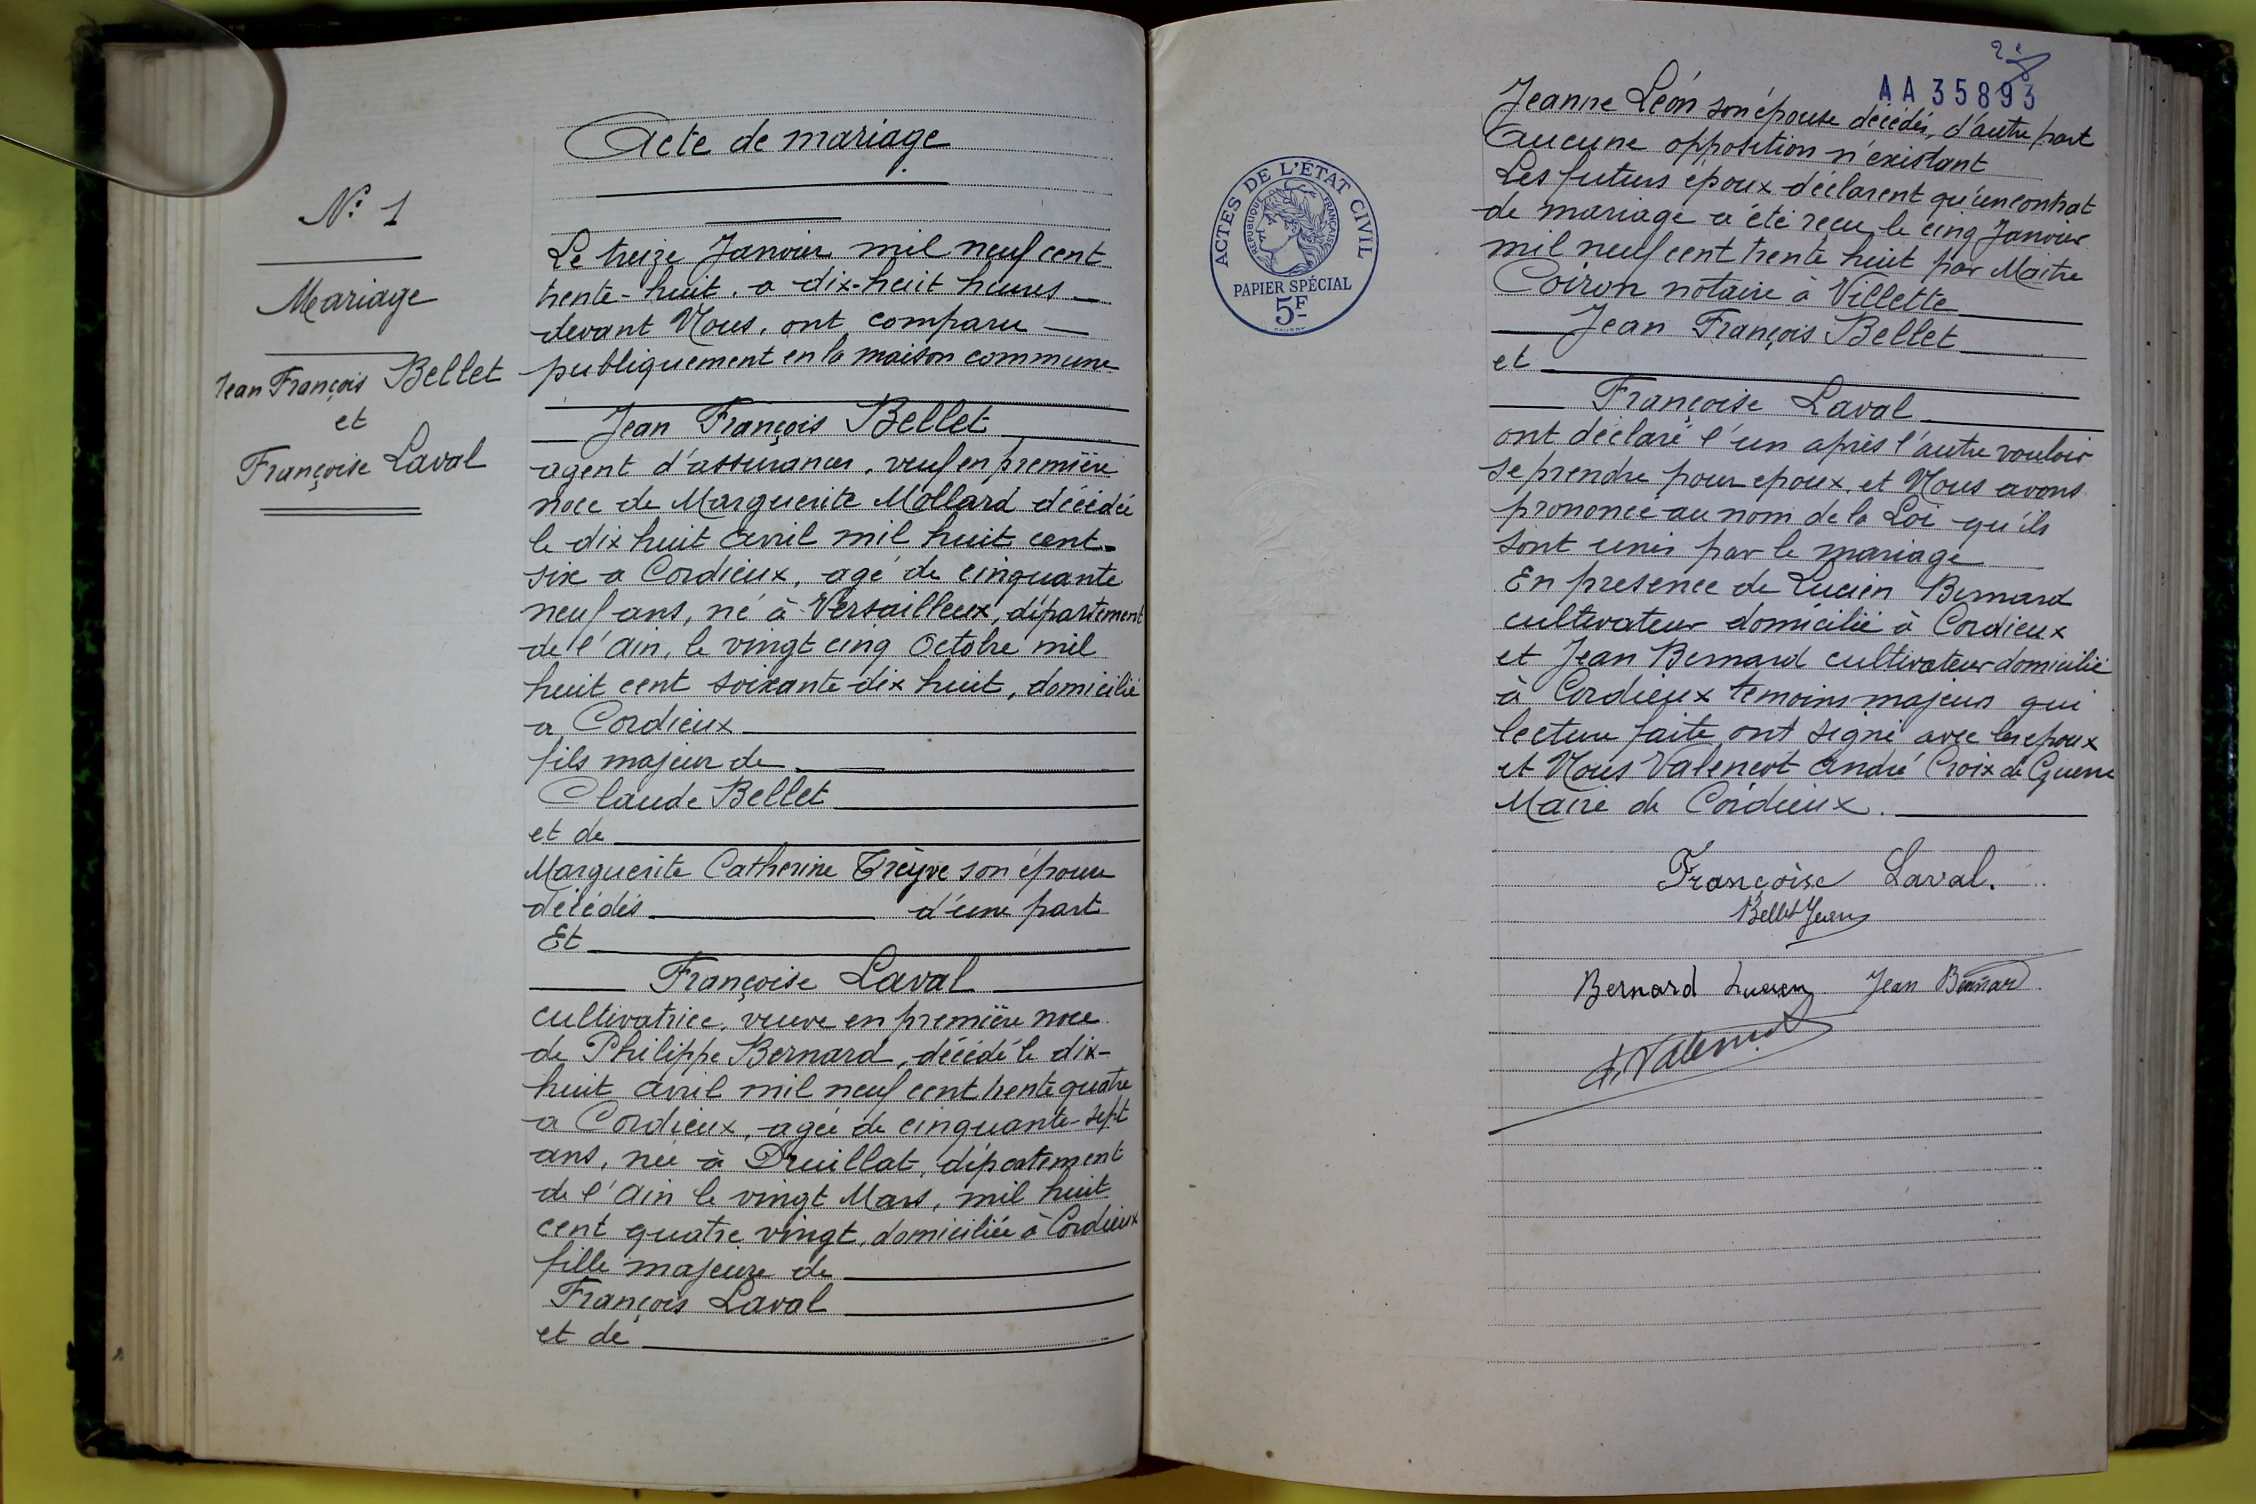 Acte de mariage
N° 1
Mariage
Jean François Bellet
et
Françoise Laval
Le treize Janvier mil neuf cent
trente-huit, a dix-huit heures
devant Nous, ont comparu
publiquement en la maison commune
Jean François Bellet
agent d'assurances, veuf en première
noce de Marguerite Mollard décédée
le dix huit avril mil huit cent
six a Cordieux, agé de cinquante
neuf ans, né à Versailleux, département
de l'Ain, le vingt cinq Octobre mil
huit cent soixante dix huit, domicilié
a Cordieux
fils majeur de
Claude Bellet
et de
Marguerite Catherine Trèyve son épouse
décédés d'une part
Et
Françoise Laval
cultivatrice, veuve en première noce
de Philippe Bernard, décédé le dix-
huit avril mil neuf cent trente quatre
a Cordieux, agée de cinquante-sept
ans, née à Druillat, département
de l'Ain le vingt Mars, mil huit
cent quatre vingt, domiciliée à Cordieux
fille majeure de
François Laval
et de
AA 35893
Jeanne Léon son épouse décédés, d'autre part
Aucune opposition n'existant
Les futurs époux déclarent qu'un contrat
de mariage a été recu le cinq Janvier
mil neuf cent trente huit par Maitre
Coiron notaire à Villette
Jean François Bellet
et
Françoise Laval
ont déclaré l'un après l'autre vouloir
se prendre pour epoux, et Nous avons
prononce au nom de la Loi qu'ils
sont unis par le mariage
En presence de Lucien Bernard
cultivateur domicilié à Cordieux
et Jean Bernard cultivateur domicilié
à Cordieux temoins majeurs qui
lecture faite ont signé avec les epoux
et Nous Valencot André Croix de Guerre
Maire de Cordieux.
Françoise Laval.
Bellet Jean
Bernard Lucien Jean Bernard
A. Valencot
ACTES DE L'ÉTAT CIVIL
RÉPUBLIQUE FRANÇAISE
PAPIER SPÉCIAL
5F